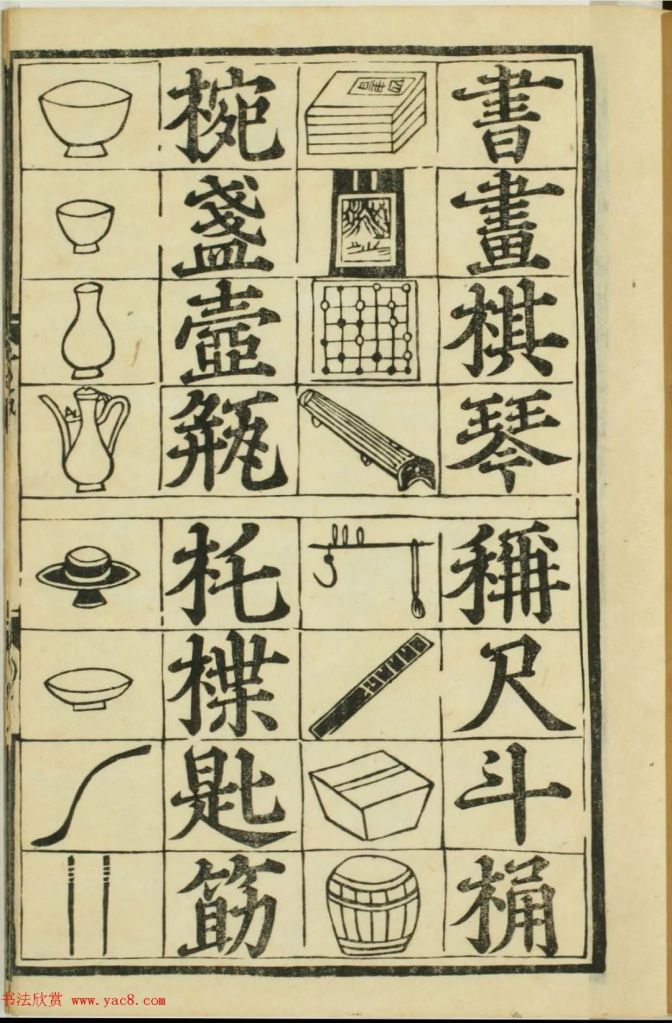 書畫棋琴
稱尺斗桶
四書
椀盞壺甁
杔楪匙筯
书法欣赏 www.yac8.com